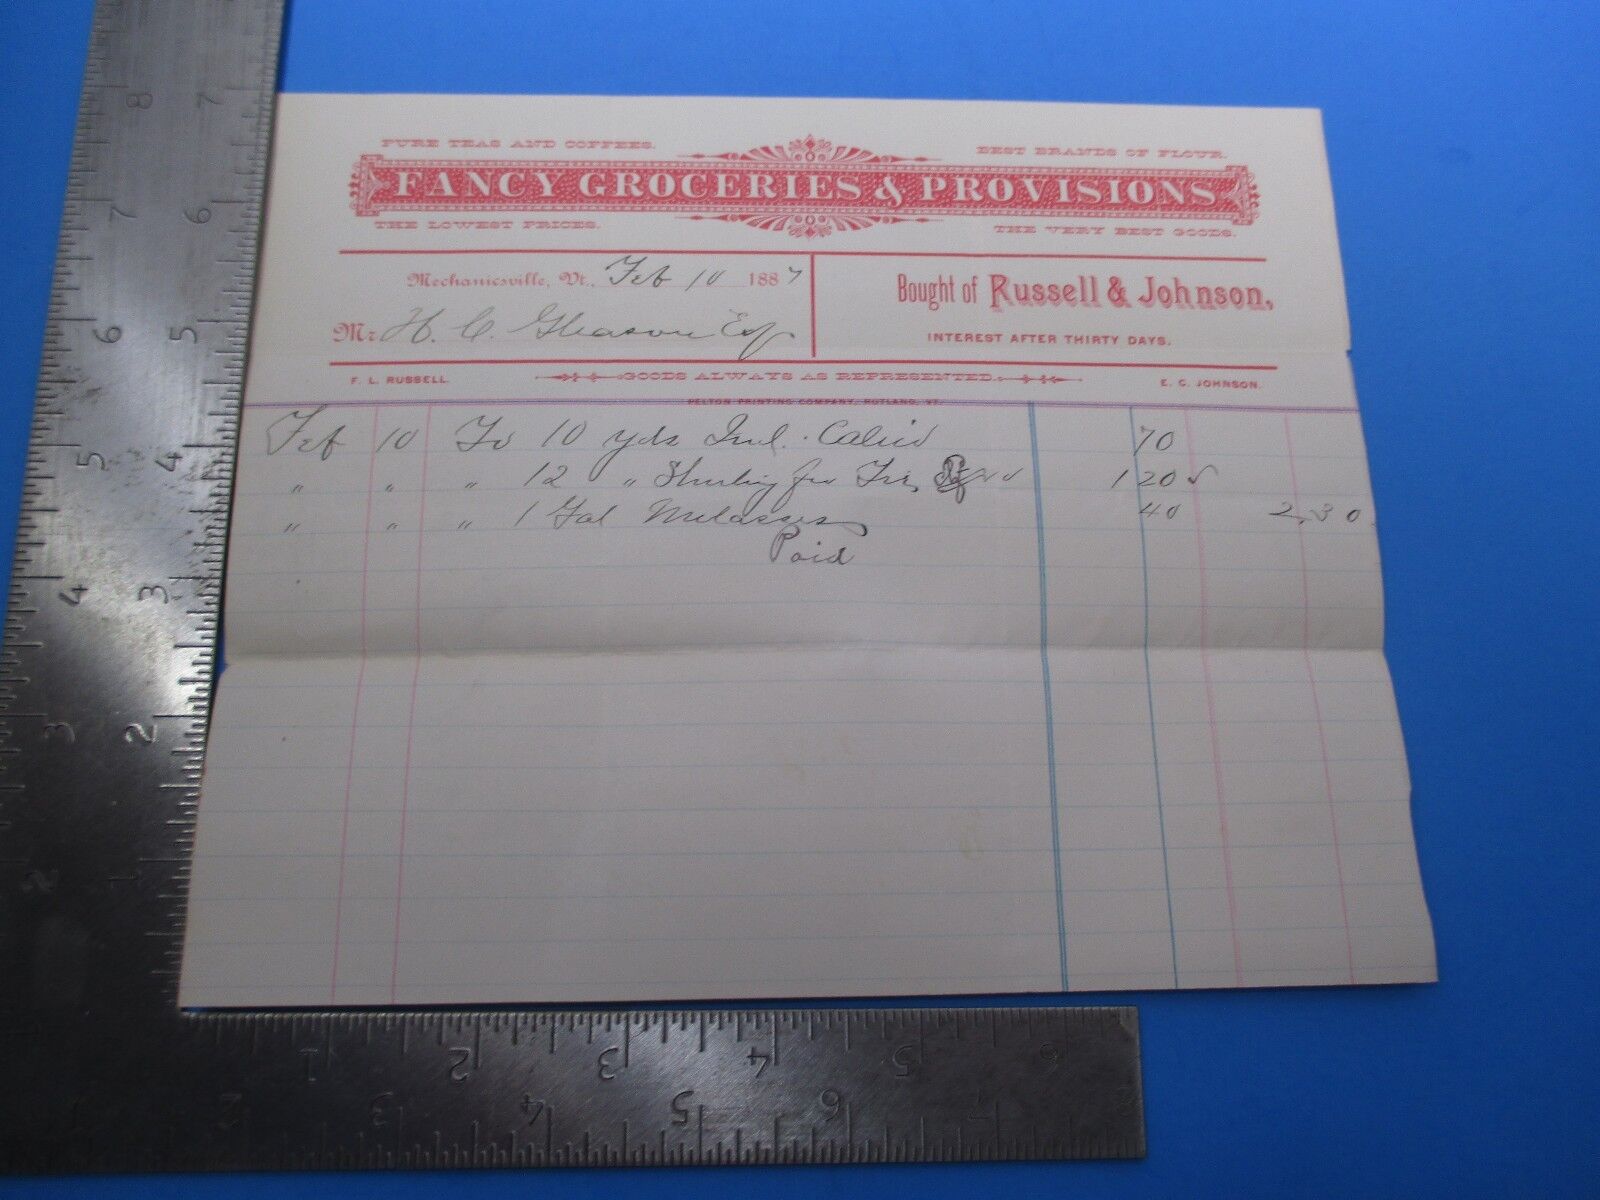 PURE TEAS AND COFFEES. BEST BRANDS OF FLOUR.
FANCY GROCERIES & PROVISIONS
THE LOWEST PRICES. THE VERY BEST GOODS.
Mechanicsville, Vt., Feb 10 1887
Bought of Russell & Johnson,
Mr H. C. Gleason Esq
INTEREST AFTER THIRTY DAYS.
F. L. RUSSELL. GOODS ALWAYS AS REPRESENTED. E. C. JOHNSON.
PELTON PRINTING COMPANY, RUTLAND, VT.
Feb 10 To 10 yds Ind. Calico 70
" " " 12 " Shirting for 1 20
" " " 1 Gal Molasses 40 2,30
Paid
8 7
7 6
6 5
5 4
4 3
3 2
2 1
1 2 3 4 5 6
1 2 3 4 5 6 7